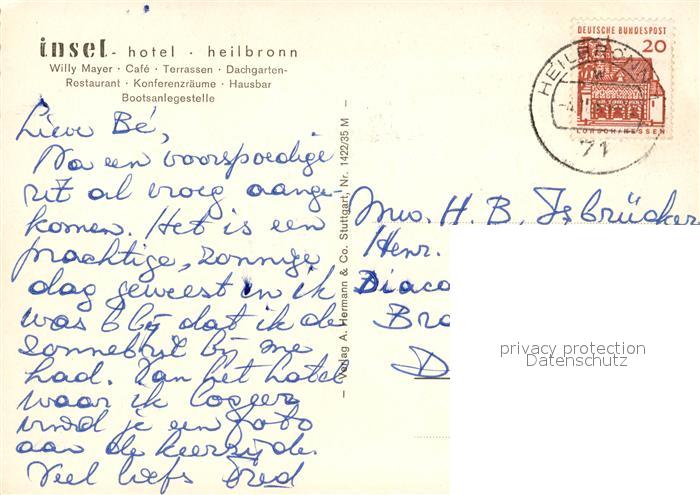 insel - hotel · heilbronn
Willy Mayer · Café · Terrassen · Dachgarten-
Restaurant · Konferenzräume · Hausbar
Bootsanlegestelle
Lieve Bé,
Na een voorspoedige
rit al vroeg aange-
komen. Het is een
prachtige, zonnige
dag geweest en ik
was blij dat ik de
zonnebril bij me
had. Van het hotel
waar ik logeer
vind je een foto
aan de keerzijde.
Veel liefs Fred
— Verlag A. Hermann & Co. Stuttgart, Nr. 1422/35 M —
DEUTSCHE BUNDESPOST
20
LORSCH/HESSEN
HEILBRONN
71
Mw. H. B. IJsbrücker
Henr.
Diaco
Bro
D
privacy protection
Datenschutz